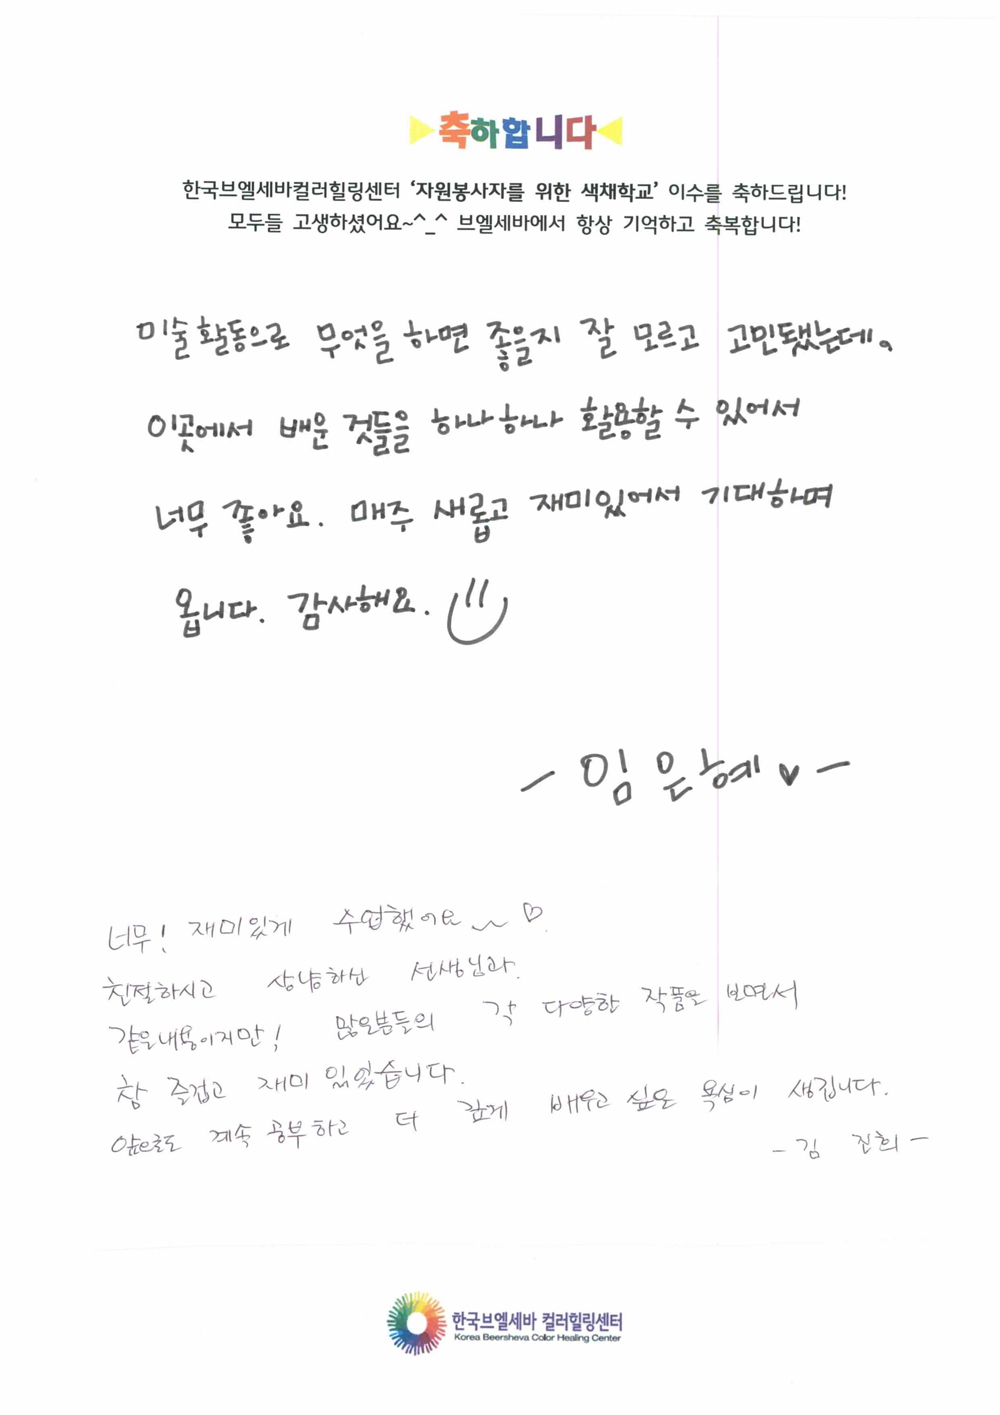 축하합니다
한국브엘세바컬러힐링센터 '자원봉사자를 위한 색채학교' 이수를 축하드립니다!
모두들 고생하셨어요~^_^ 브엘세바에서 항상 기억하고 축복합니다!
미술활동으로 무엇을 하면 좋을지 잘 모르고 고민됐는데.
이곳에서 배운 것들을 하나하나 활용할 수 있어서
너무 좋아요. 매주 새롭고 재미있어서 기대하며
옵니다. 감사해요.
- 임은혜 ♥ -
너무! 재미있게 수업했어요 ~ ♡.
친절하시고 상냥하신 선생님과.
같은내용이지만! 많은분들의 각 다양한 작품을 보면서
참 즐겁고 재미 있었습니다.
앞으로도 계속 공부하고 더 깊게 배우고 싶은 욕심이 생깁니다.
- 김 진희 -
한국브엘세바 컬러힐링센터
Korea Beersheva Color Healing Center